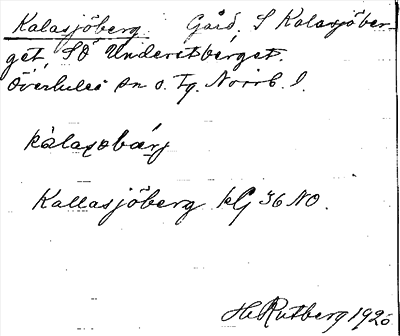 Kalasjöberg Gård. S Kalasjöber-
get, SÖ Understberget.
Överkalix sn o. tg. Norrb. l.
kàlaṣobærj
Kallasjöberg kG 36 NO.
H. Rutberg 1920